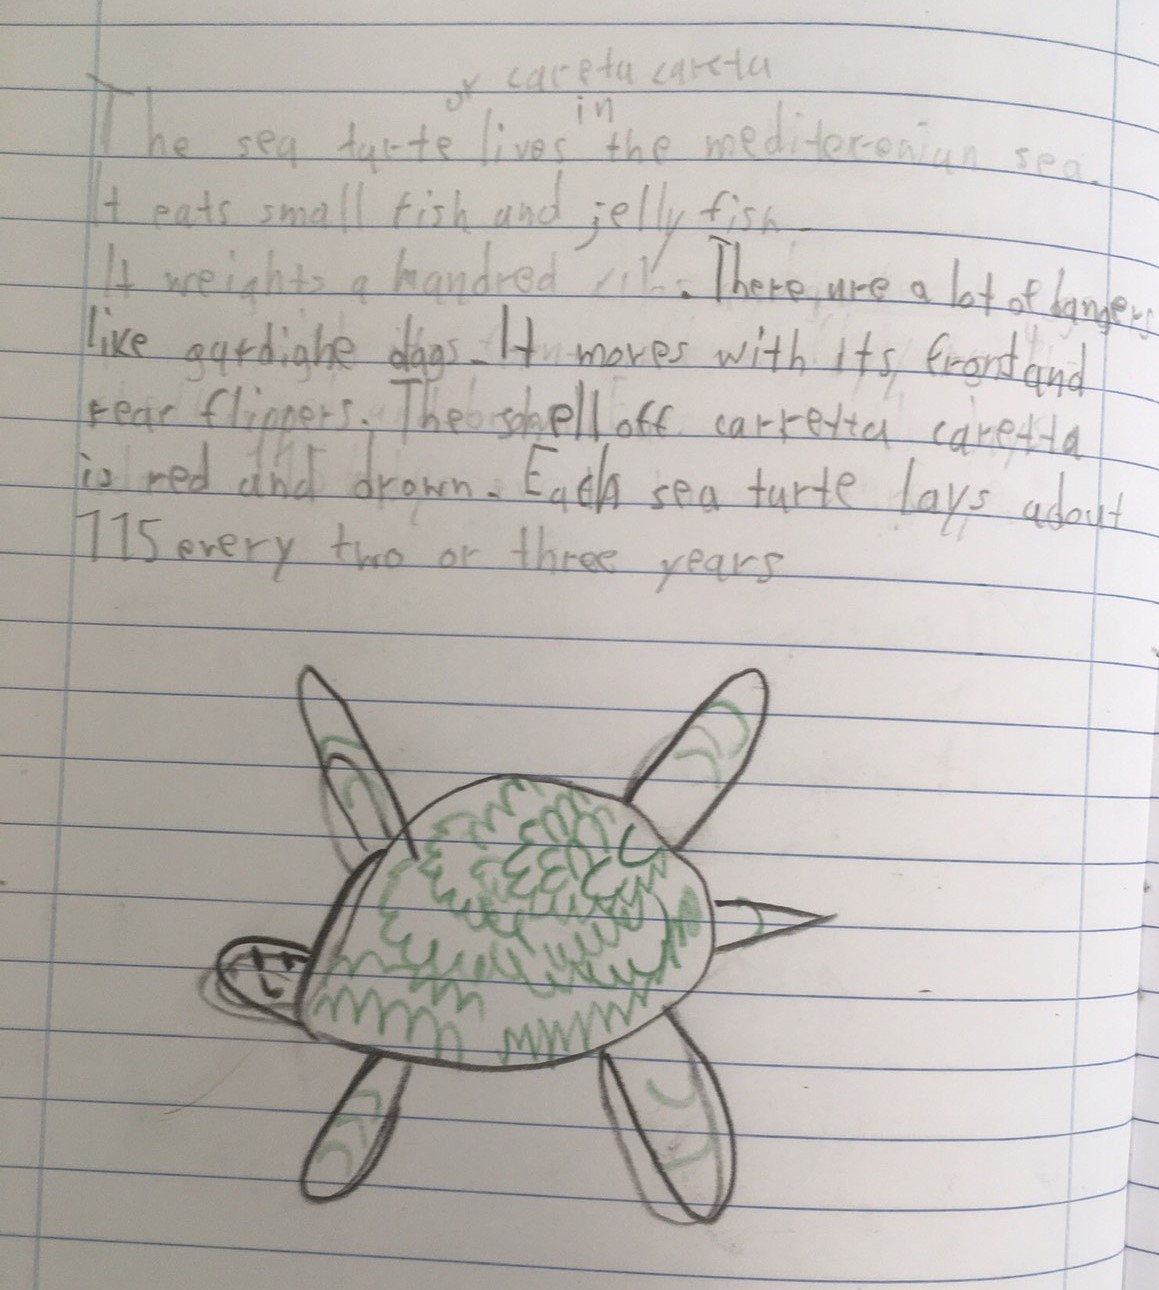 or careta careta
in
The sea turte lives the mediterenian sea.
It eats small fish and jelly fish.
It weights a handred . There are a lot of dangers
like gardighe dags. It moves with its front and
rear flippers. The shell off carretta caretta
is red and drown. Each sea turte lays adout
115 every two or three years